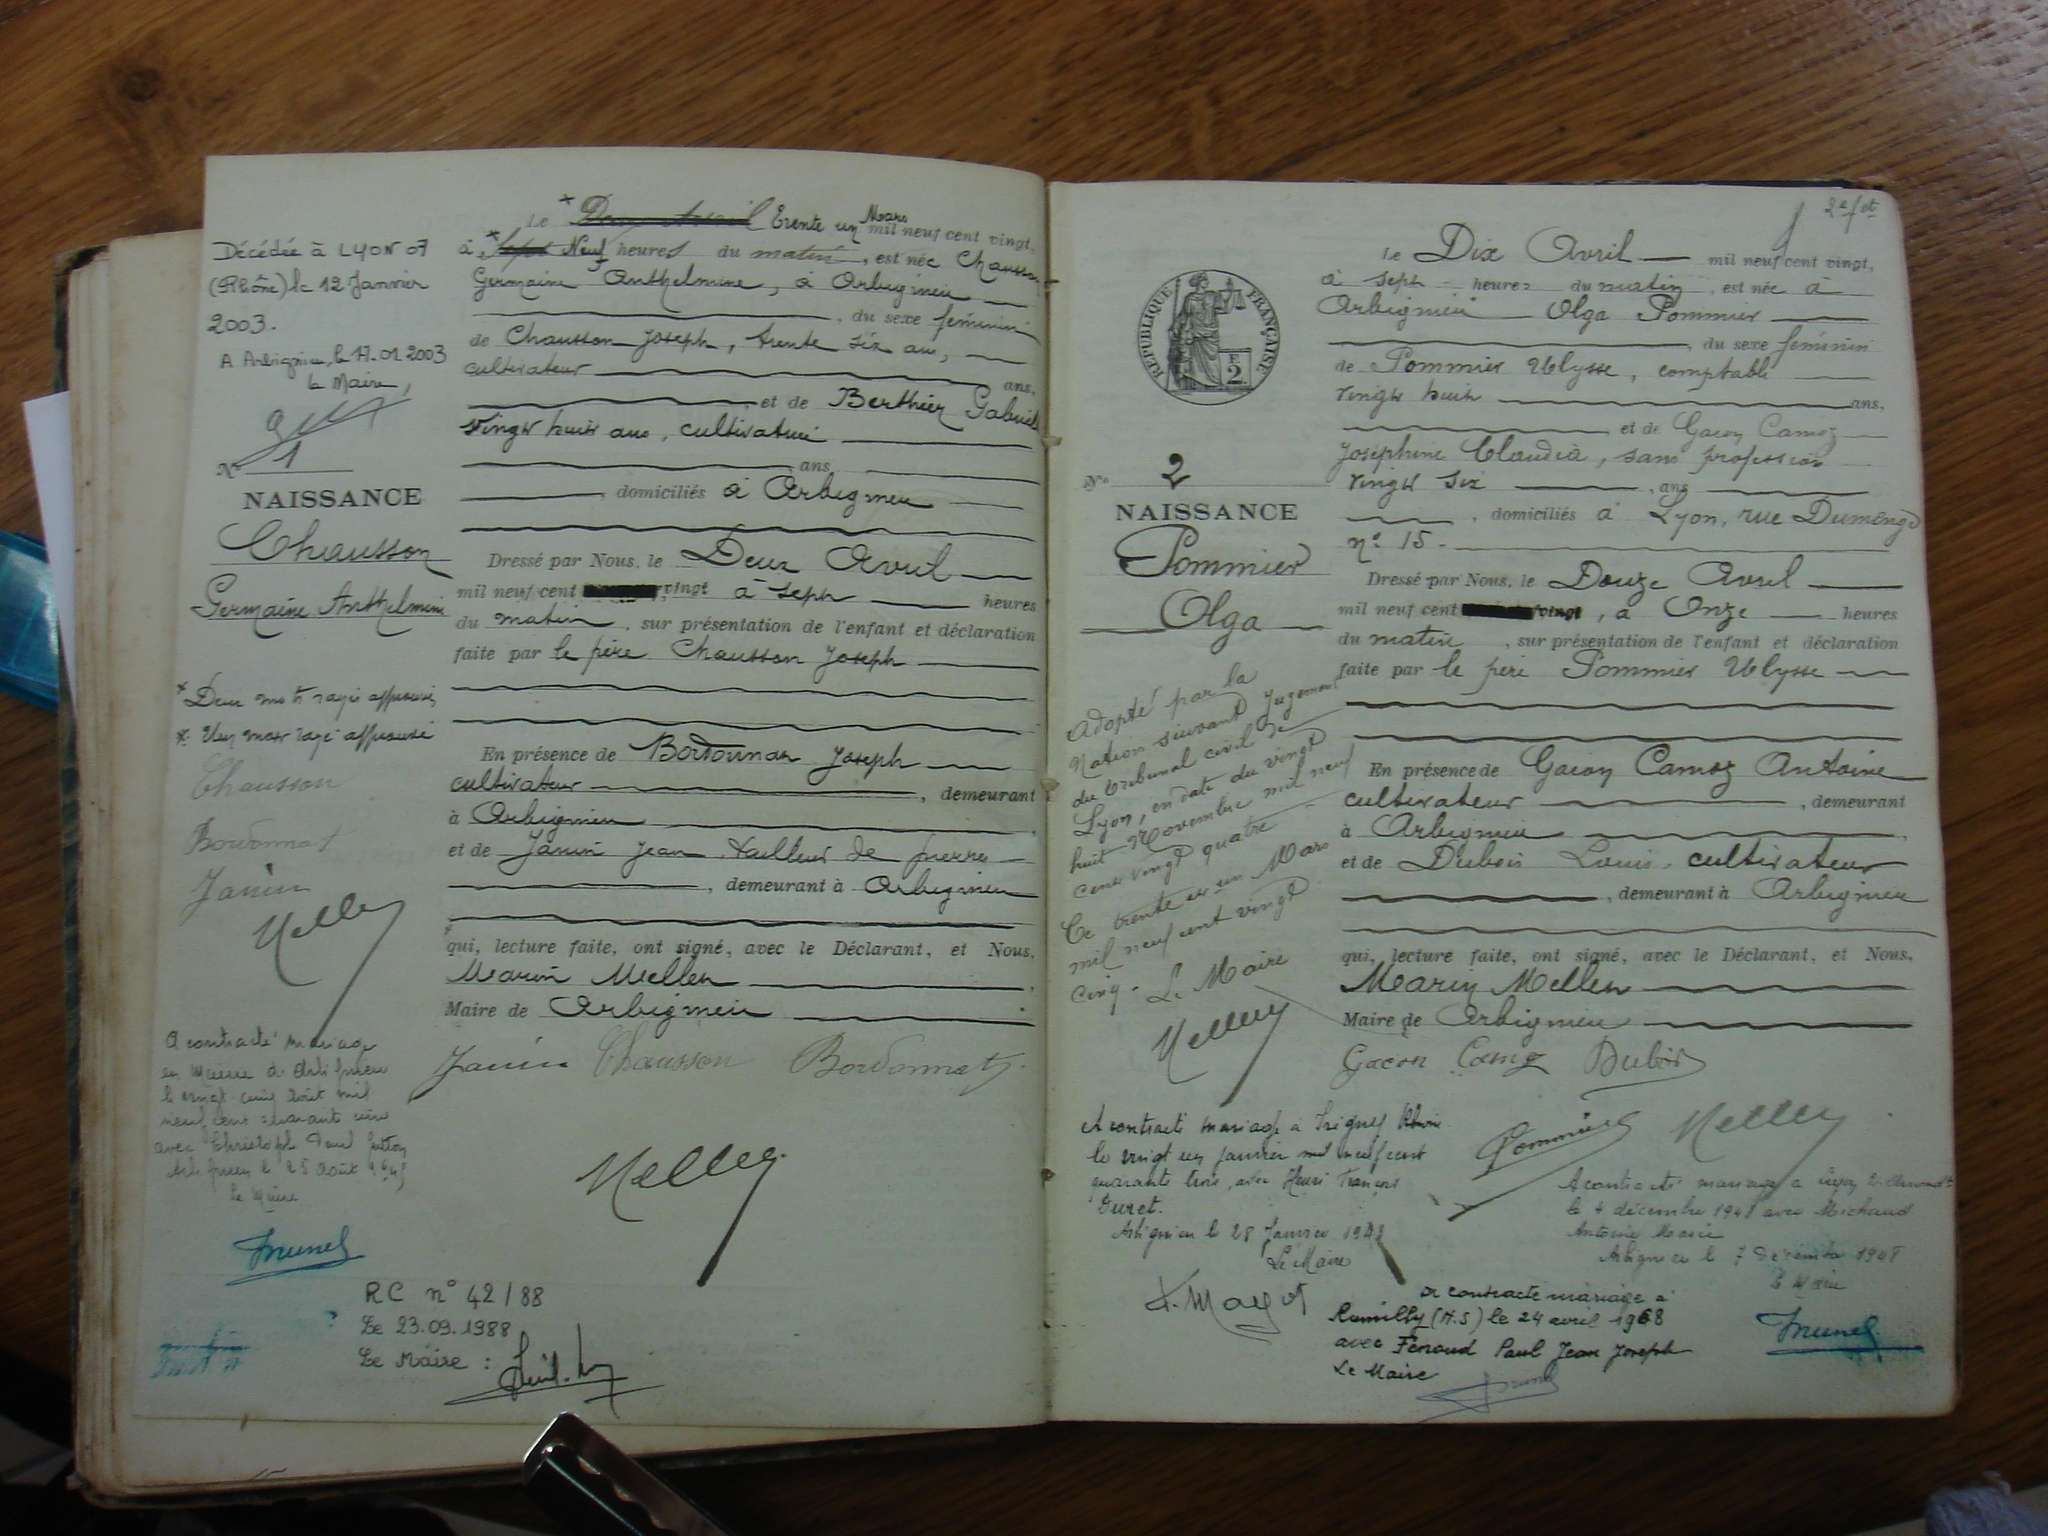 Décédée à LYON 07
(Rhône) le 12 Janvier
2003.
A Arbignieu, le 17.01.2003
le Maire,
N° 1
NAISSANCE
Chausson
Germaine Anthelmine
* Deux mots rayés approuvés
* Un mot rayé approuvé
Chausson
Bordonnat
Janin
Mellen
A contracté mariage
en Mairie d'Arbignieu
le vingt cinq Août mil
neuf cent quarante cinq
avec Christoph Paul
Arbignieu le 25 Août 1945
le Maire
Brunel
Le Deux Avril Trente un Mars mil neuf cent vingt,
à Sept Neuf heures du matin, est née Chausson
Germaine Anthelmine, à Arbignieu
, du sexe féminin
de Chausson Joseph, trente six ans,
cultivateur ans,
et de Berthier Gabriel
vingt huit ans, cultivatrice
ans
, domiciliés à Arbignieu
Dressé par Nous, le Deux Avril
mil neuf cent vingt à sept heures
du matin, sur présentation de l'enfant et déclaration
faite par le père Chausson Joseph
En présence de Bordonnat Joseph
cultivateur, demeurant
à Arbignieu
et de Janin Jean, tailleur de pierres
, demeurant à Arbignieu
qui, lecture faite, ont signé, avec le Déclarant, et Nous,
Marin Mellen
Maire de Arbignieu
Janin Chausson Bordonnat
Mellen
RC n° 42/88
Le 23.09.1988
Le Maire :
2e f et
RÉPUBLIQUE FRANÇAISE
F
2
N° 2
NAISSANCE
Pommier
Olga
Adopté par la
Nation suivant Jugement
du tribunal civil de
Lyon, en date du vingt
huit Novembre mil neuf
cent vingt quatre
Ce trente et un Mars
mil neuf cent vingt
cinq. Le Maire
Mellen
A contracté mariage à Irigny Rhône
le vingt un janvier mil neuf cent
quarante trois, avec Henri François
Duret.
Arbignieu le 28 Janvier 1943
Le Maire
Le Dix Avril mil neuf cent vingt,
à sept heures du matin, est née à
Arbignieu Olga Pommier
, du sexe féminin
de Pommier Ulysse, comptable
vingt huit ans,
et de Gacon Camoz
Joséphine Claudia, sans profession
vingt six, ans
, domiciliés à Lyon, rue Dumenge
n° 15.
Dressé par Nous, le Douze Avril
mil neuf cent vingt, à Onze heures
du matin, sur présentation de l'enfant et déclaration
faite par le père Pommier Ulysse
En présence de Gacon Camoz Antoine
cultivateur, demeurant
à Arbignieu
et de Dubois Louis, cultivateur
, demeurant à Arbignieu
qui, lecture faite, ont signé, avec le Déclarant, et Nous,
Marin Mellen
Maire de Arbignieu
Gacon Camoz Dubois
Pommier Mellen
A contracté mariage à
le 4 décembre 1948 avec Michaud
Antoine Marie
Arbignieu le 7 Décembre 1948
le Maire
Brunel
A contracté mariage à
Rumilly (H.S) le 24 avril 1968
avec Fénaud Paul Jean Joseph
Le Maire
Brunel